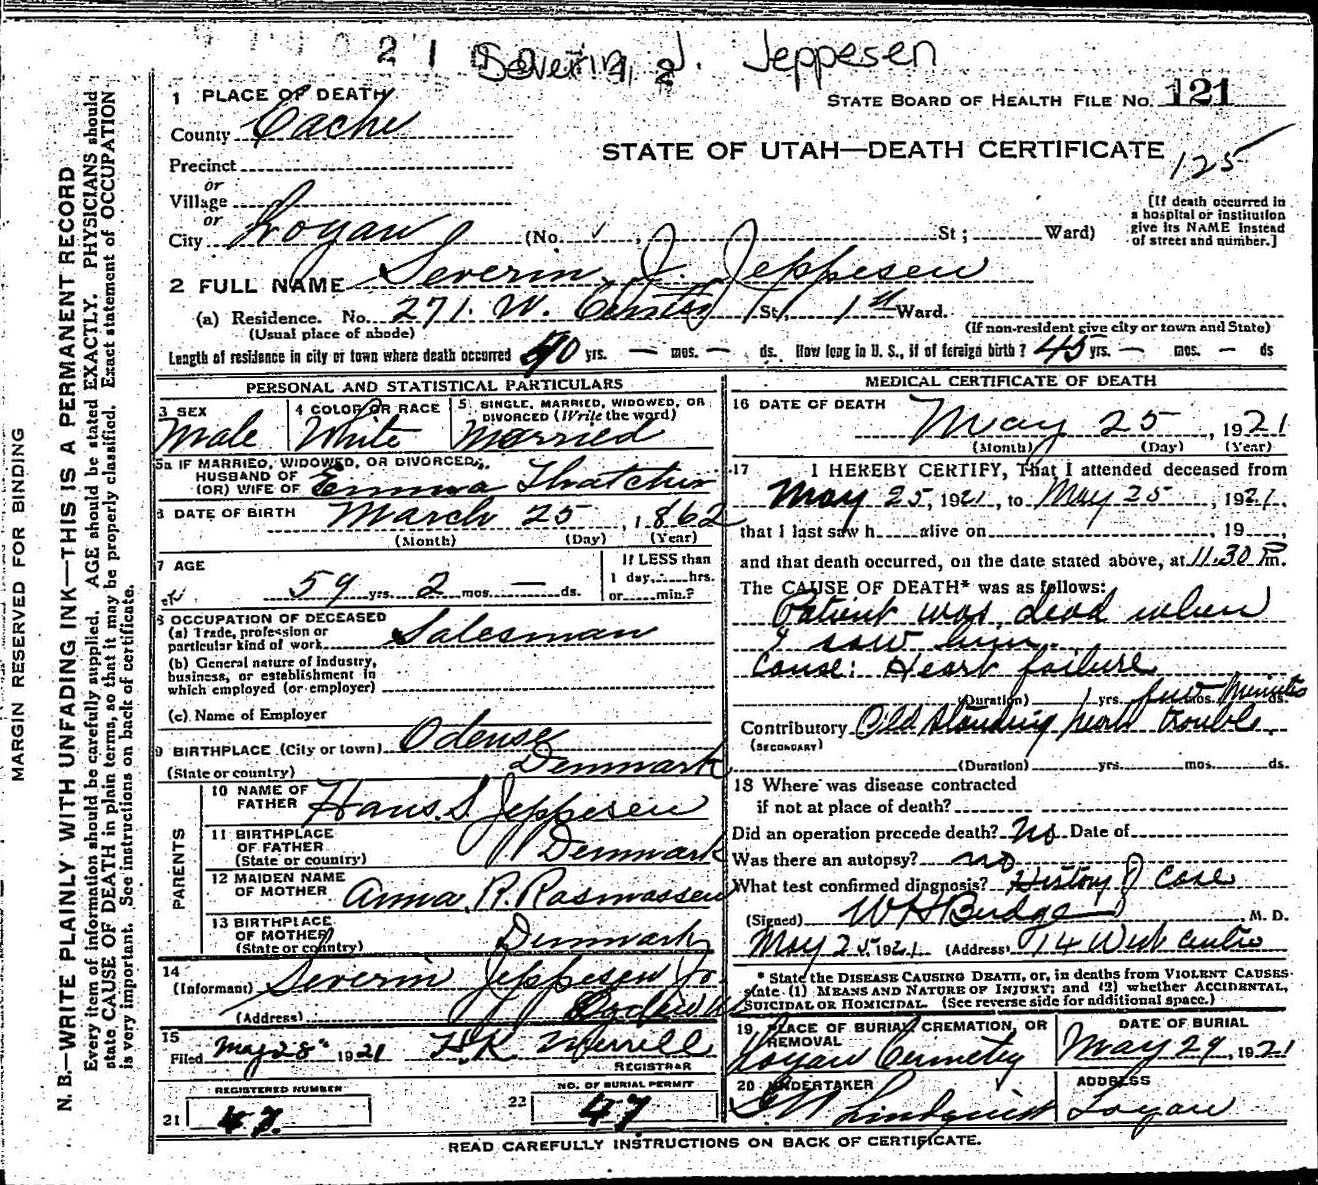 Severin J. Jeppesen
1 PLACE OF DEATH
STATE BOARD OF HEALTH FILE NO. 121
County Cache
STATE OF UTAH—DEATH CERTIFICATE
125
Precinct
or
Village
or
City Logan (No. , St ; Ward)
[If death occurred in
a hospital or institution
give its NAME instead
of street and number.]
2 FULL NAME Severin J. Jeppesen
(a) Residence. No. 271. W. Center St. 1st Ward.
(Usual place of abode) (If non-resident give city or town and State)
Length of residence in city or town where death occurred 40 yrs. — mos. — ds. How long in U. S., if of foreign birth? 45 yrs. — mos. — ds
PERSONAL AND STATISTICAL PARTICULARS
3 SEX Male
4 COLOR OR RACE White
5 SINGLE, MARRIED, WIDOWED, OR
DIVORCED (Write the word)
Married
5a IF MARRIED, WIDOWED, OR DIVORCED,
HUSBAND OF
(OR) WIFE OF Emma Thatcher
6 DATE OF BIRTH March 25, 1862
(Month) (Day) (Year)
7 AGE
59 yrs. 2 mos. — ds.
If LESS than
1 day, hrs.
or min.?
8 OCCUPATION OF DECEASED
(a) Trade, profession or
particular kind of work Salesman
(b) General nature of industry,
business, or establishment in
which employed (or employer)
(c) Name of Employer
9 BIRTHPLACE (City or town) Odense
(State or country) Denmark
PARENTS
10 NAME OF
FATHER Hans. S. Jeppesen
11 BIRTHPLACE
OF FATHER
(State or country) Denmark
12 MAIDEN NAME
OF MOTHER Anna. R. Rasmassen
13 BIRTHPLACE
OF MOTHER
(State or country) Denmark
14
(Informant) Severin Jeppesen Jr.
(Address)
15
Filed May 28" 1921 H.K. Merrill
REGISTRAR
REGISTERED NUMBER
21 47.
NO. OF BURIAL PERMIT
22 47
MEDICAL CERTIFICATE OF DEATH
16 DATE OF DEATH May 25, 1921
(Month) (Day) (Year)
17 I HEREBY CERTIFY, That I attended deceased from
May 25, 1921, to May 25, 1921,
that I last saw h alive on , 19 ,
and that death occurred, on the date stated above, at 11.30 P.m.
The CAUSE OF DEATH* was as follows:
Patient was dead when
I saw him.
Cause: Heart failure
(Duration) yrs. few mos. Minutes ds.
Contributory Old standing heart trouble.
(SECONDARY)
(Duration) yrs. mos. ds.
18 Where was disease contracted
if not at place of death?
Did an operation precede death? No Date of
Was there an autopsy? no
What test confirmed diagnosis? History of case
(Signed) W H Budge, M. D.
May 25, 1921 (Address) 14 West Centre
* State the DISEASE CAUSING DEATH, or, in deaths from VIOLENT CAUSES
state (1) MEANS AND NATURE OF INJURY; and (2) whether ACCIDENTAL,
SUICIDAL or HOMICIDAL. (See reverse side for additional space.)
19 PLACE OF BURIAL, CREMATION, OR
REMOVAL
Logan Cemetery
DATE OF BURIAL
May 29, 1921
20 UNDERTAKER
Lindquist
ADDRESS
Logan
READ CAREFULLY INSTRUCTIONS ON BACK OF CERTIFICATE.
MARGIN RESERVED FOR BINDING
N. B.—WRITE PLAINLY WITH UNFADING INK—THIS IS A PERMANENT RECORD
Every item of information should be carefully supplied. AGE should be stated EXACTLY. PHYSICIANS should
state CAUSE OF DEATH in plain terms, so that it may be properly classified. Exact statement of OCCUPATION
is very important. See instructions on back of certificate.